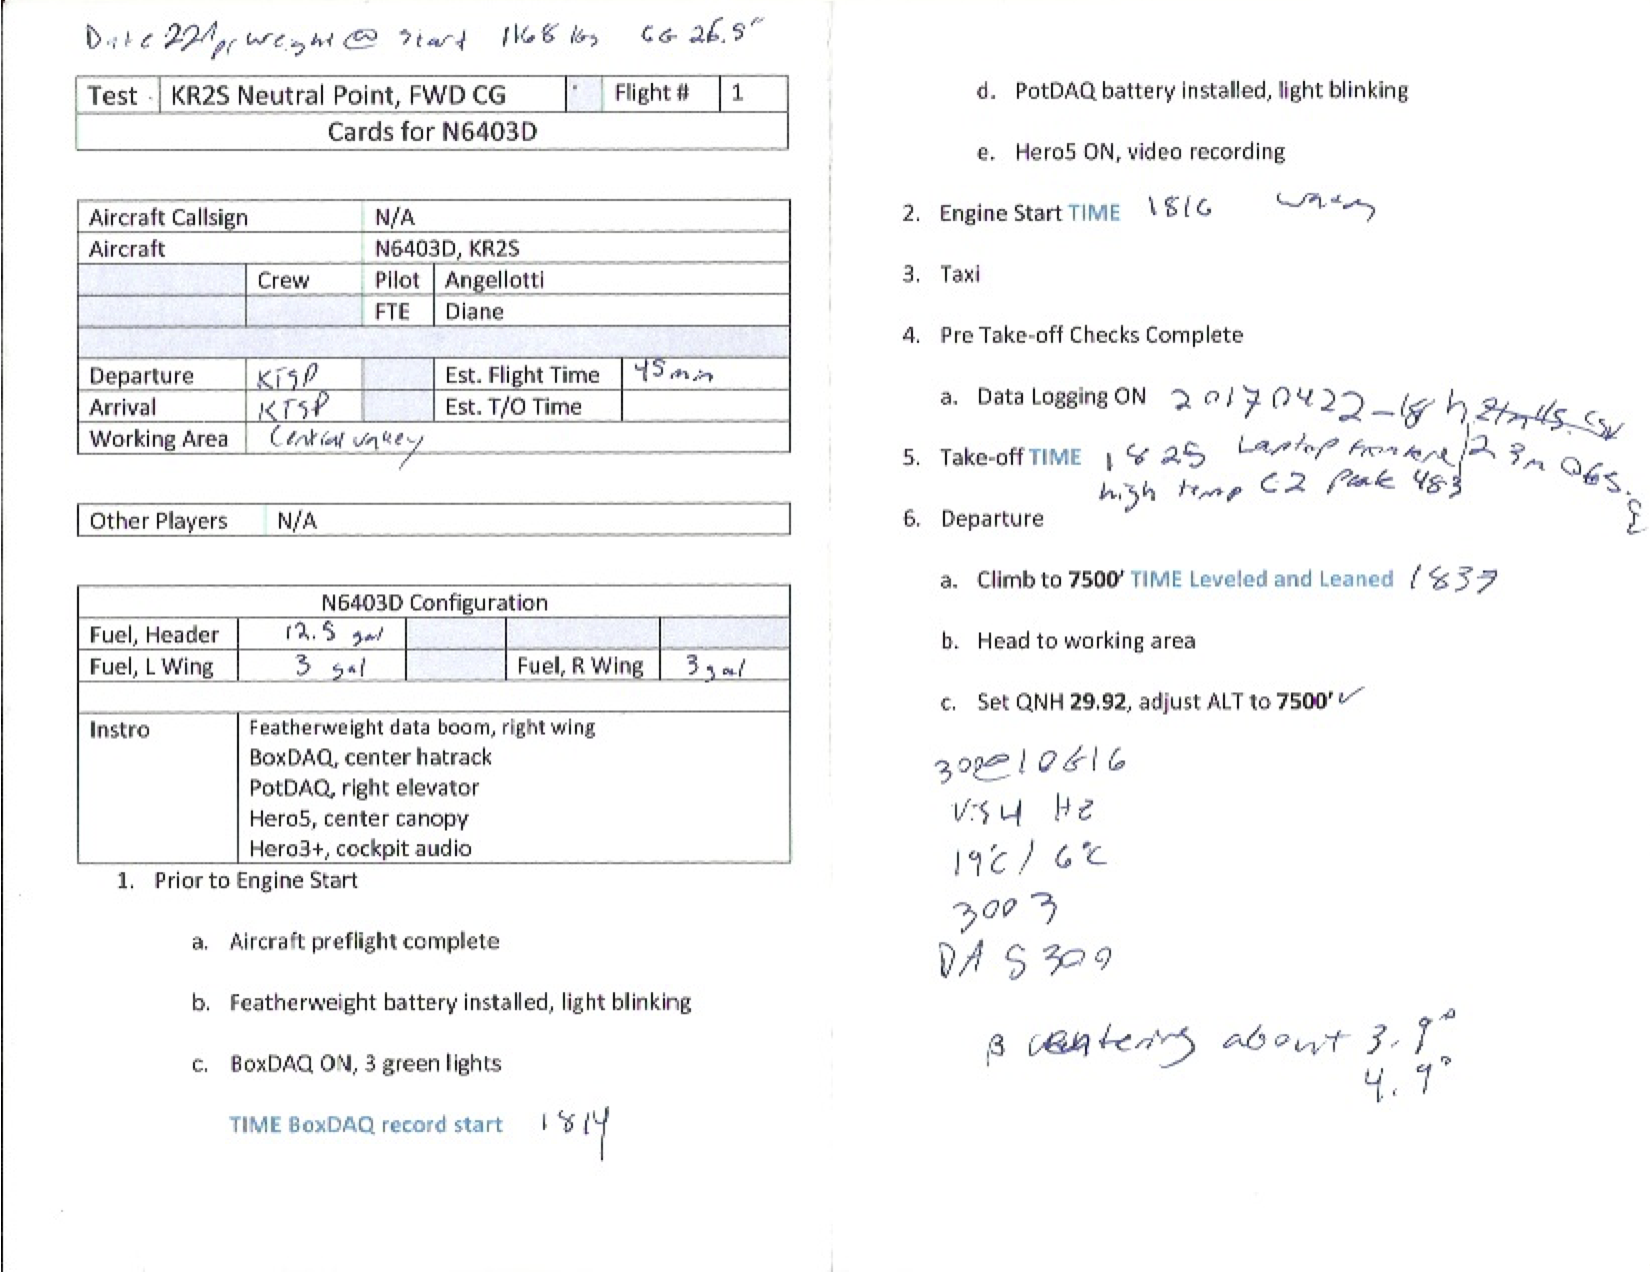 Date 22Apr Weight @ Start 1168 lbs CG 26.5"
Test KR2S Neutral Point, FWD CG Flight # 1
Cards for N6403D
Aircraft Callsign N/A
Aircraft N6403D, KR2S
Crew Pilot Angellotti
FTE Diane
Departure KTSP Est. Flight Time 45 min
Arrival KTSP Est. T/O Time
Working Area Central valley
Other Players N/A
N6403D Configuration
Fuel, Header 12.5 gal
Fuel, L Wing 3 gal Fuel, R Wing 3 gal
Instro Featherweight data boom, right wing
BoxDAQ, center hatrack
PotDAQ, right elevator
Hero5, center canopy
Hero3+, cockpit audio
1. Prior to Engine Start
a. Aircraft preflight complete
b. Featherweight battery installed, light blinking
c. BoxDAQ ON, 3 green lights
TIME BoxDAQ record start 1814
d. PotDAQ battery installed, light blinking
e. Hero5 ON, video recording
2. Engine Start TIME 1816
3. Taxi
4. Pre Take-off Checks Complete
a. Data Logging ON 20170422-18h
5. Take-off TIME 1825 Laptop 23m 06s.
high temp C2 Peak 483
6. Departure
a. Climb to 7500' TIME Leveled and Leaned 1837
b. Head to working area
c. Set QNH 29.92, adjust ALT to 7500' ✓
10G16
19°C / 6°C
3003
DA 5300
β centering about 3.9°
4.9°